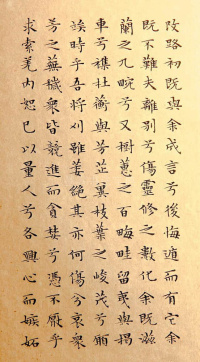 改路初既與余成言兮後悔遁而有它余
既不難夫離別兮傷靈修之數化余既滋
蘭之九畹兮又樹蕙之百畮畦留夷與揭
車兮雜杜衡與芳芷冀枝葉之峻茂兮願
竢時乎吾將刈雖萎絕其亦何傷兮哀衆
芳之蕪穢衆皆競進而貪婪兮憑不厭乎
求索羌內恕己以量人兮各興心而嫉妬